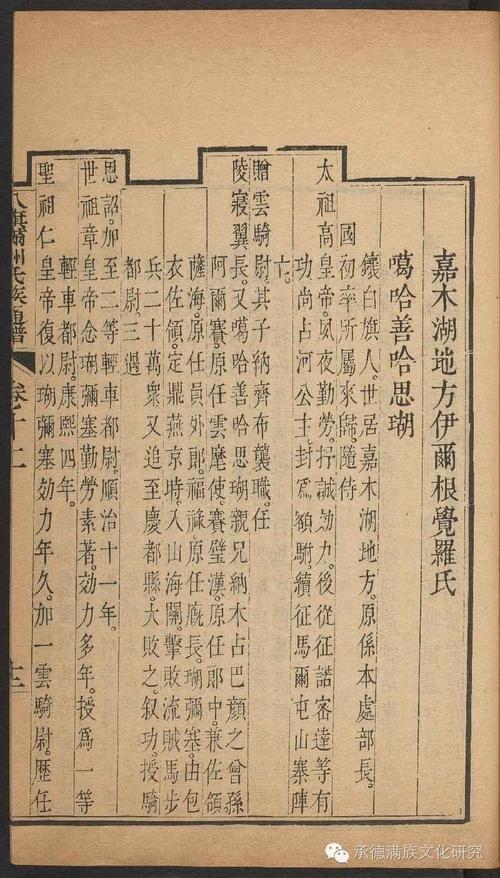 嘉木湖地方伊爾根覺羅氏
噶哈善哈思瑚
鑲白旗人。世居嘉木湖地方。原係本處部長。
國初率所屬來歸。隨侍
太祖高皇帝。夙夜勤勞。抒誠効力。後從征諾密達等有
功。尚占河公主。封爲額駙。續征馬爾屯山寨。陣
亡。
贈雲騎尉。其子納齊布襲職。任
陵寢翼長。又噶哈善哈思瑚親兄納木占巴顏之曾孫
阿爾賽。原任雲麾使。賽璧漢。原任郎中。兼佐領。
薩海。原任員外郎。福祿。原任廄長。瑚彌塞。由包
衣佐領。定鼎燕京時。入山海關。擊敗流賊馬步
兵二十萬衆。又追至慶都縣。大敗之。叙功。授騎
都尉。三遇
恩詔。加至二等輕車都尉。順治十一年。
世祖章皇帝念瑚彌塞勤勞素著。効力多年。授爲一等
輕車都尉。康熙四年。
聖祖仁皇帝復以瑚彌塞効力年久。加一雲騎尉。歷任
八旗滿洲氏族通譜 卷十二 十二
承德满族文化研究